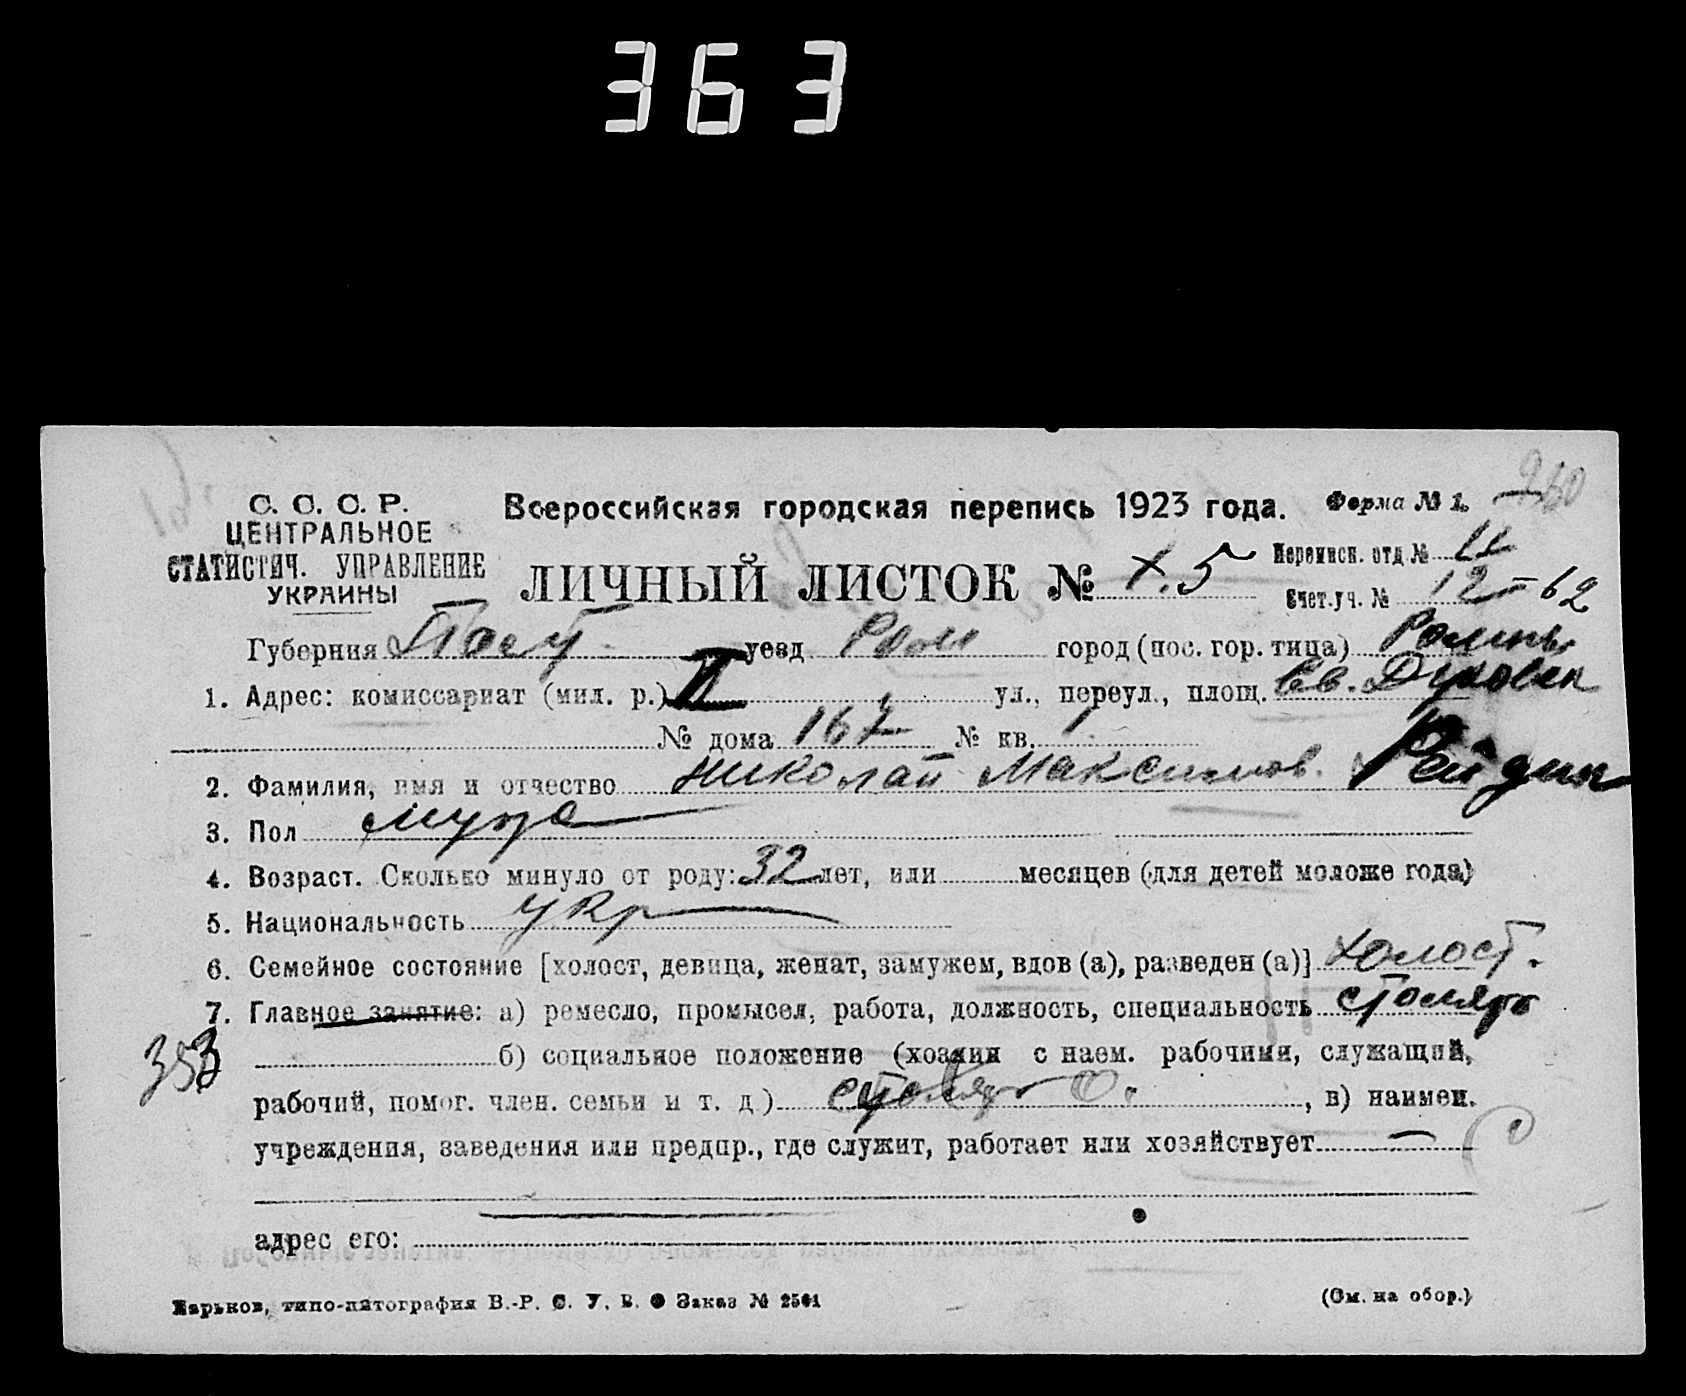 363
С. С. С. Р.
ЦЕНТРАЛЬНОЕ
СТАТИСТИЧ. УПРАВЛЕНИЕ
УКРАИНЫ
Всероссийская городская перепись 1923 года. Форма № 1.
ЛИЧНЫЙ ЛИСТОК № X. 5
Переписн. отд. № 11
Счет. уч. № 12-62
Губерния Полт уезд Ром город (пос. гор. типа) Ромны
1. Адрес: комиссариат (мил. р.) II ул., переул., площ. Св. Духовск
№ дома 167 № кв. 1
2. Фамилия, имя и отчество Николай Максимов.
3. Пол муж
4. Возраст. Сколько минуло от роду: 32 лет, или месяцев (для детей моложе года)
5. Национальность укр
6. Семейное состояние [холост, девица, женат, замужем, вдов (а), разведен (а)] холост.
7. Главное занятие: а) ремесло, промысел, работа, должность, специальность столяр
353
б) социальное положение (хозяин с наем. рабочими, служащий,
рабочий, помог. член. семьи и т. д.) столяр о. , в) наимен.
учреждения, заведения или предпр., где служит, работает или хозяйствует —
адрес его:
Харьков, типо-литография В.-Р. С. У. В. Заказ № 2501 (См. на обор.)